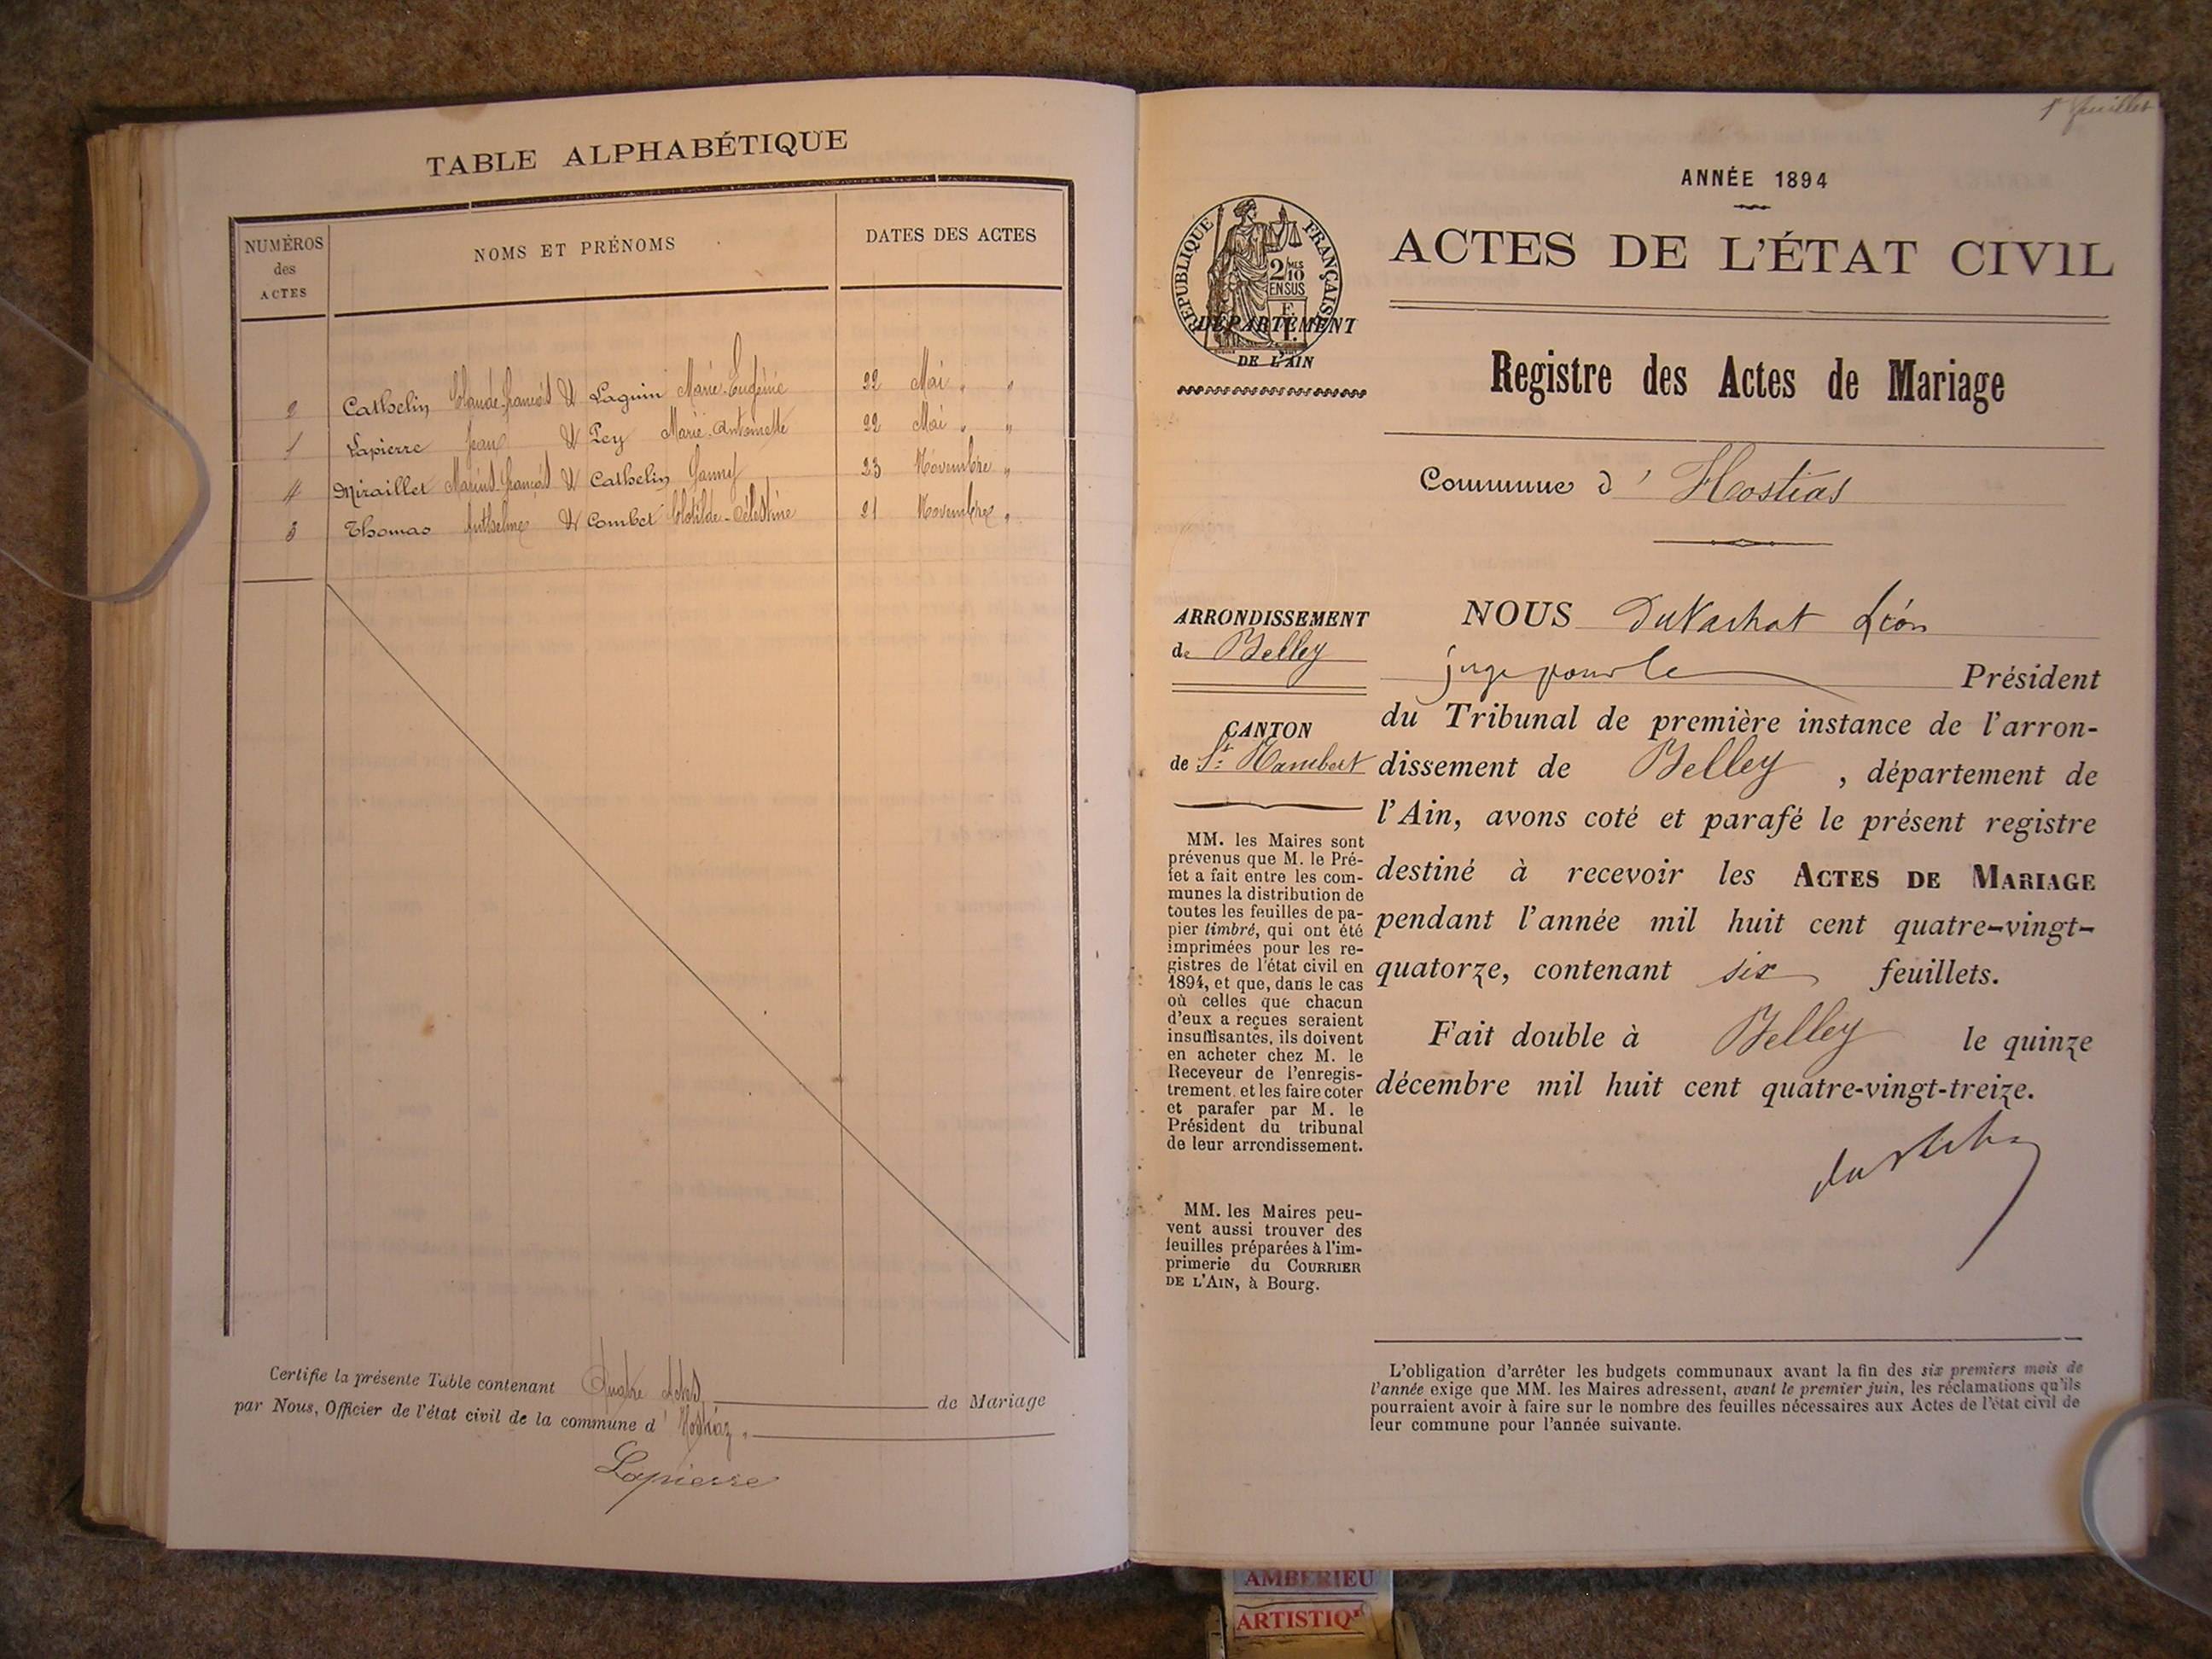 TABLE ALPHABÉTIQUE
NUMÉROS des ACTES
NOMS ET PRÉNOMS
DATES DES ACTES
2 Cathelin Claude-François & Laguin Marie-Eugénie 22 Mai "  "
1 Lapierre Jean & Pey Marie-Antoinette 22 Mai "  "
4 Miraillet Marius-François & Cathelin Fanny 23 Novembre "
3 Thomas Anthelme & Combet Clotilde-Célestine 21 Novembre "
Certifie la présente Table contenant Quatre Actes de Mariage
par Nous, Officier de l'état civil de la commune d' Hostiaz.
Lapierre
1er feuillet
ANNÉE 1894
RÉPUBLIQUE FRANÇAISE
2/10MES
EN SUS
DÉPARTEMENT
DE L'AIN
ACTES DE L'ÉTAT CIVIL
Registre des Actes de Mariage
Commune d' Hostias
ARRONDISSEMENT
de Belley
CANTON
de St Rambert
MM. les Maires sont
prévenus que M. le Pré-
fet a fait entre les com-
munes la distribution de
toutes les feuilles de pa-
pier timbré, qui ont été
imprimées pour les re-
gistres de l'état civil en
1894, et que, dans le cas
où celles que chacun
d'eux a reçues seraient
insuffisantes, ils doivent
en acheter chez M. le
Receveur de l'enregis-
trement, et les faire coter
et parafer par M. le
Président du tribunal
de leur arrondissement.
MM. les Maires peu-
vent aussi trouver des
feuilles préparées à l'im-
primerie du COURRIER
DE L'AIN, à Bourg.
NOUS Duvachat Léon
juge pour le Président
du Tribunal de première instance de l'arron-
dissement de Belley , département de
l'Ain, avons coté et parafé le présent registre
destiné à recevoir les ACTES DE MARIAGE
pendant l'année mil huit cent quatre-vingt-
quatorze, contenant six feuillets.
Fait double à Belley le quinze
décembre mil huit cent quatre-vingt-treize.
L'obligation d'arrêter les budgets communaux avant la fin des six premiers mois de
l'année exige que MM. les Maires adressent, avant le premier juin, les réclamations qu'ils
pourraient avoir à faire sur le nombre des feuilles nécessaires aux Actes de l'état civil de
leur commune pour l'année suivante.
AMBERIEU
ARTISTIQ